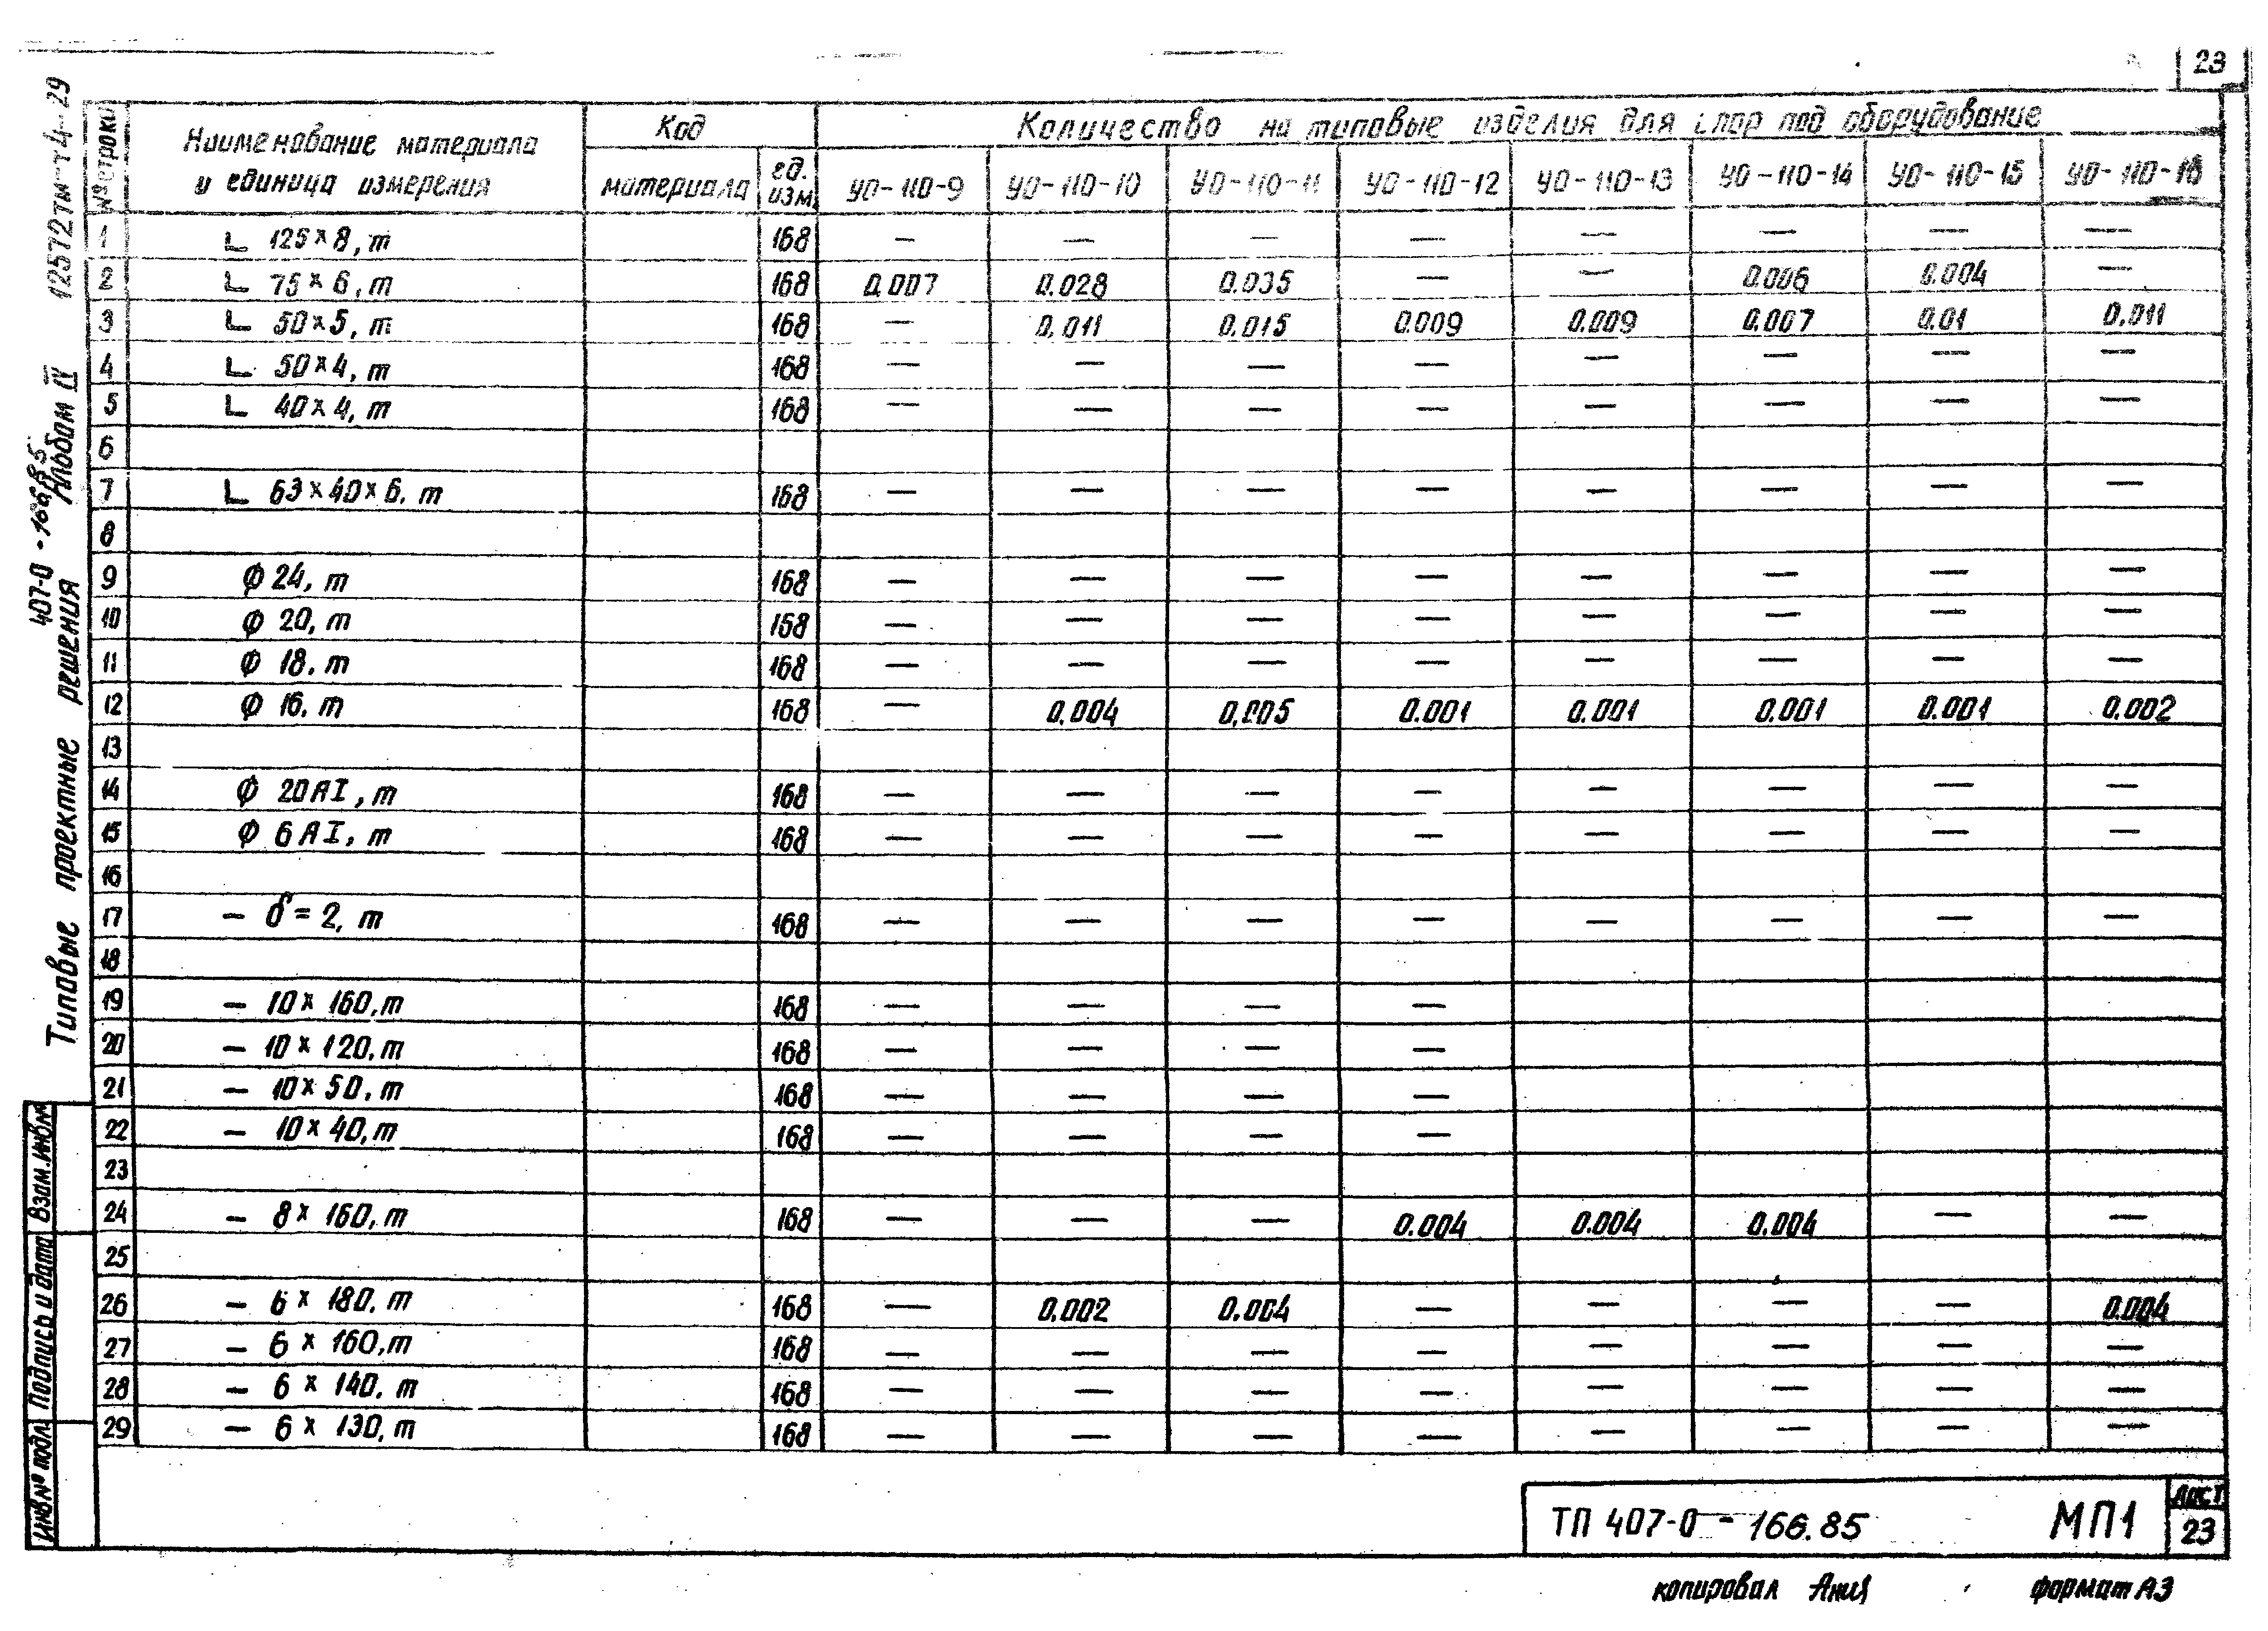 23
№ строки
Наименование материала и единица измерения
Код
материала
ед. изм.
Количество на типовые изделия для опор под оборудование
УО-110-9 УО-110-10 УО-110-11 УО-110-12 УО-110-13 УО-110-14 УО-110-15 УО-110-16
1 ∟ 125×8, т 168 — — — — — — — —
2 ∟ 75×6, т 168 0.007 0.028 0.035 — — 0.006 0.004 —
3 ∟ 50×5, т 168 — 0.011 0.015 0.009 0.009 0.007 0.01 0.011
4 ∟ 50×4, т 168 — — — — — — — —
5 ∟ 40×4, т 168 — — — — — — — —
6
7 ∟ 63×40×6. т 168 — — — — — — — —
8
9 Ф 24, т 168 — — — — — — — —
10 Ф 20, т 168 — — — — — — — —
11 Ф 18. т 168 — — — — — — — —
12 Ф 16. т 168 — 0.004 0.005 0.001 0.001 0.001 0.001 0.002
13
14 Ф 20АI, т 168 — — — — — — — —
15 Ф 6АI, т 168 — — — — — — — —
16
17 — δ=2, т 168 — — — — — — — —
18
19 — 10×160, т 168 — — — —
20 — 10×120, т 168 — — — —
21 — 10×50, т 168 — — — —
22 — 10×40, т 168 — — — —
23
24 — 8×160, т 168 — — — 0.004 0.004 0.004 — —
25
26 — 6×180. т 168 — 0.002 0.004 — — — — 0.004
27 — 6×160, т 168 — — — — — — — —
28 — 6×140. т 168 — — — — — — — —
29 — 6×130, т 168 — — — — — — — —
Типовые проектные решения
407-0-166.85
Альбом IV
12572тм-т4-29
Взам.инв.№
Подпись и дата
Инв№ подл.
ТП 407-0-166.85 МП1
Лист
23
копировал Ания формат А3